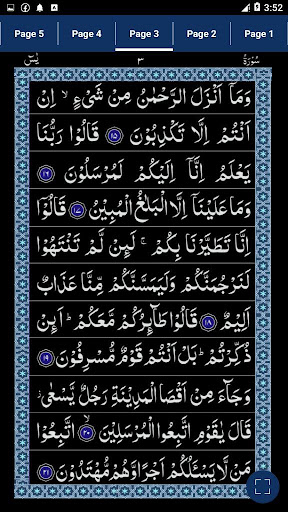 3:52
Page 5 Page 4 Page 3 Page 2 Page 1
سُوْرَةُ ٣ يٰسٓ
وَمَاۤ اَنْزَلَ الرَّحْمٰنُ مِنْ شَیْءٍ ۙ اِنْ
اَنْتُمْ اِلَّا تَكْذِبُوْنَ ﴿۱۵﴾ قَالُوْا رَبُّنَا
یَعْلَمُ اِنَّاۤ اِلَیْكُمْ لَمُرْسَلُوْنَ ﴿۱۶﴾
وَمَا عَلَیْنَاۤ اِلَّا الْبَلٰغُ الْمُبِیْنُ ﴿۱۷﴾ قَالُوْۤا
اِنَّا تَطَیَّرْنَا بِكُمْ ۚ لَىِٕنْ لَّمْ تَنْتَهُوْا
لَنَرْجُمَنَّكُمْ وَلَیَمَسَّنَّكُمْ مِّنَّا عَذَابٌ
اَلِیْمٌ ﴿۱۸﴾ قَالُوْا طَآىِٕرُكُمْ مَّعَكُمْ ؕ اَىِٕنْ
ذُكِّرْتُمْ ؕ بَلْ اَنْتُمْ قَوْمٌ مُّسْرِفُوْنَ ﴿۱۹﴾
وَجَآءَ مِنْ اَقْصَا الْمَدِیْنَةِ رَجُلٌ یَّسْعٰی ؗ
قَالَ یٰقَوْمِ اتَّبِعُوا الْمُرْسَلِیْنَ ﴿۲۰﴾ ۙ اتَّبِعُوْا
مَنْ لَّا یَسْـَٔلُكُمْ اَجْرًا وَّهُمْ مُّهْتَدُوْنَ ﴿۲۱﴾